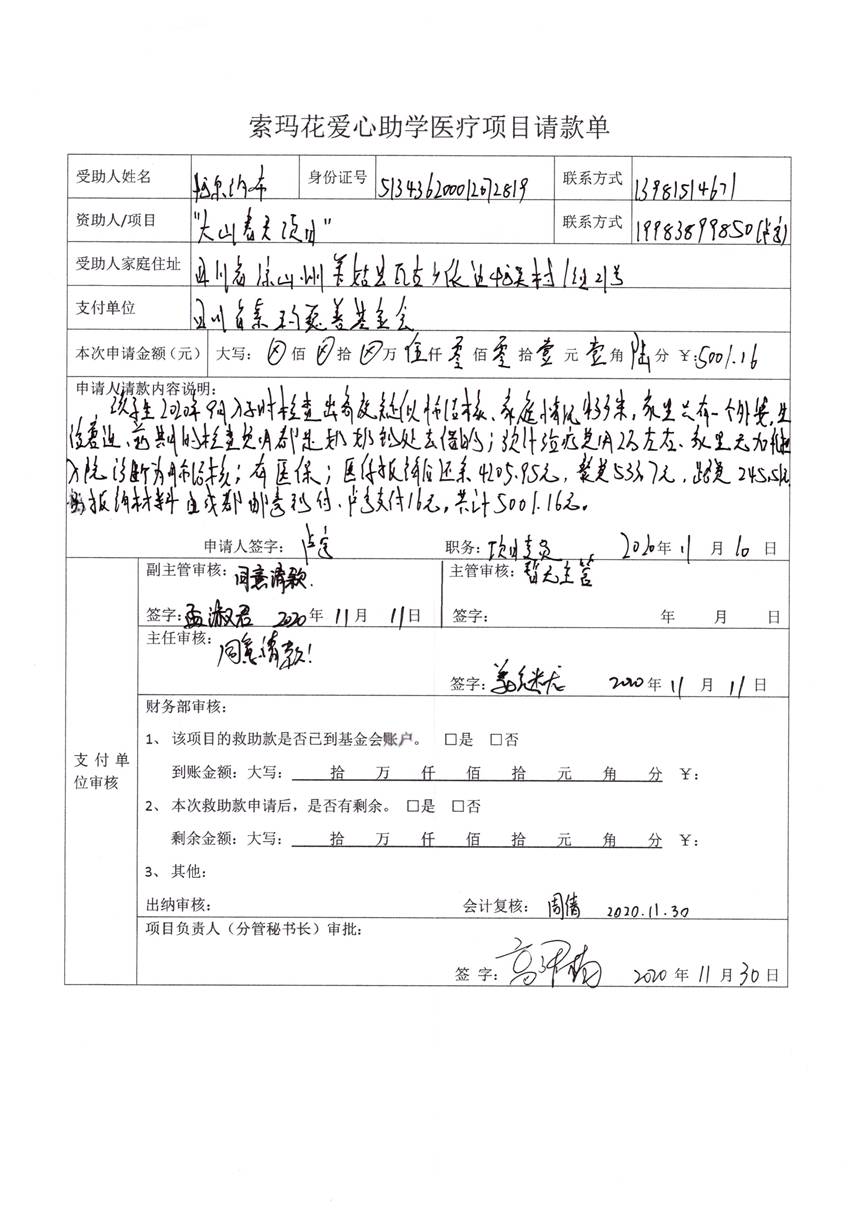 索玛花爱心助学医疗项目请款单
受助人姓名 身份证号 513436200012072819 联系方式 13981514671
资助人/项目 "大山春天项目" 联系方式 19983899850
受助人家庭住址 四川省凉山州美姑县瓦古乡依达 村1组21号
支付单位 四川省索玛慈善基金会
本次申请金额(元) 大写: 佰 拾 万 伍仟 零佰 零拾 壹元 壹角 陆分 ¥:5001.16
申请人请款内容说明:
该学生2020年9月入学时检查出 疑似肺结核、家庭情况 家里只有一个外婆,生
的检查费用都是 到处去借的;预计治疗费用2万左右、家里无力
入院诊断为肺结核;有医保;医保报销后还余4205.95元,餐费533.7元,路费245.51元
报销材料 成都邮寄到付、卢 支付16元,共计5001.16元。
申请人签字: 职务:项目专员 2020年11月10日
副主管审核:同意请款. 主管审核:暂无主管
签字:孟淑君 2020年11月11日 签字: 年 月 日
主任审核:同意请款!
签字: 2020年11月11日
支付单位审核
财务部审核:
1、 该项目的救助款是否已到基金会账户。 □是 □否
到账金额:大写: 拾 万 仟 佰 拾 元 角 分 ¥:
2、 本次救助款申请后,是否有剩余。 □是 □否
剩余金额:大写: 拾 万 仟 佰 拾 元 角 分 ¥:
3、 其他:
出纳审核: 会计复核: 周倩 2020.11.30
项目负责人(分管秘书长)审批:
签 字: 2020年11月30日